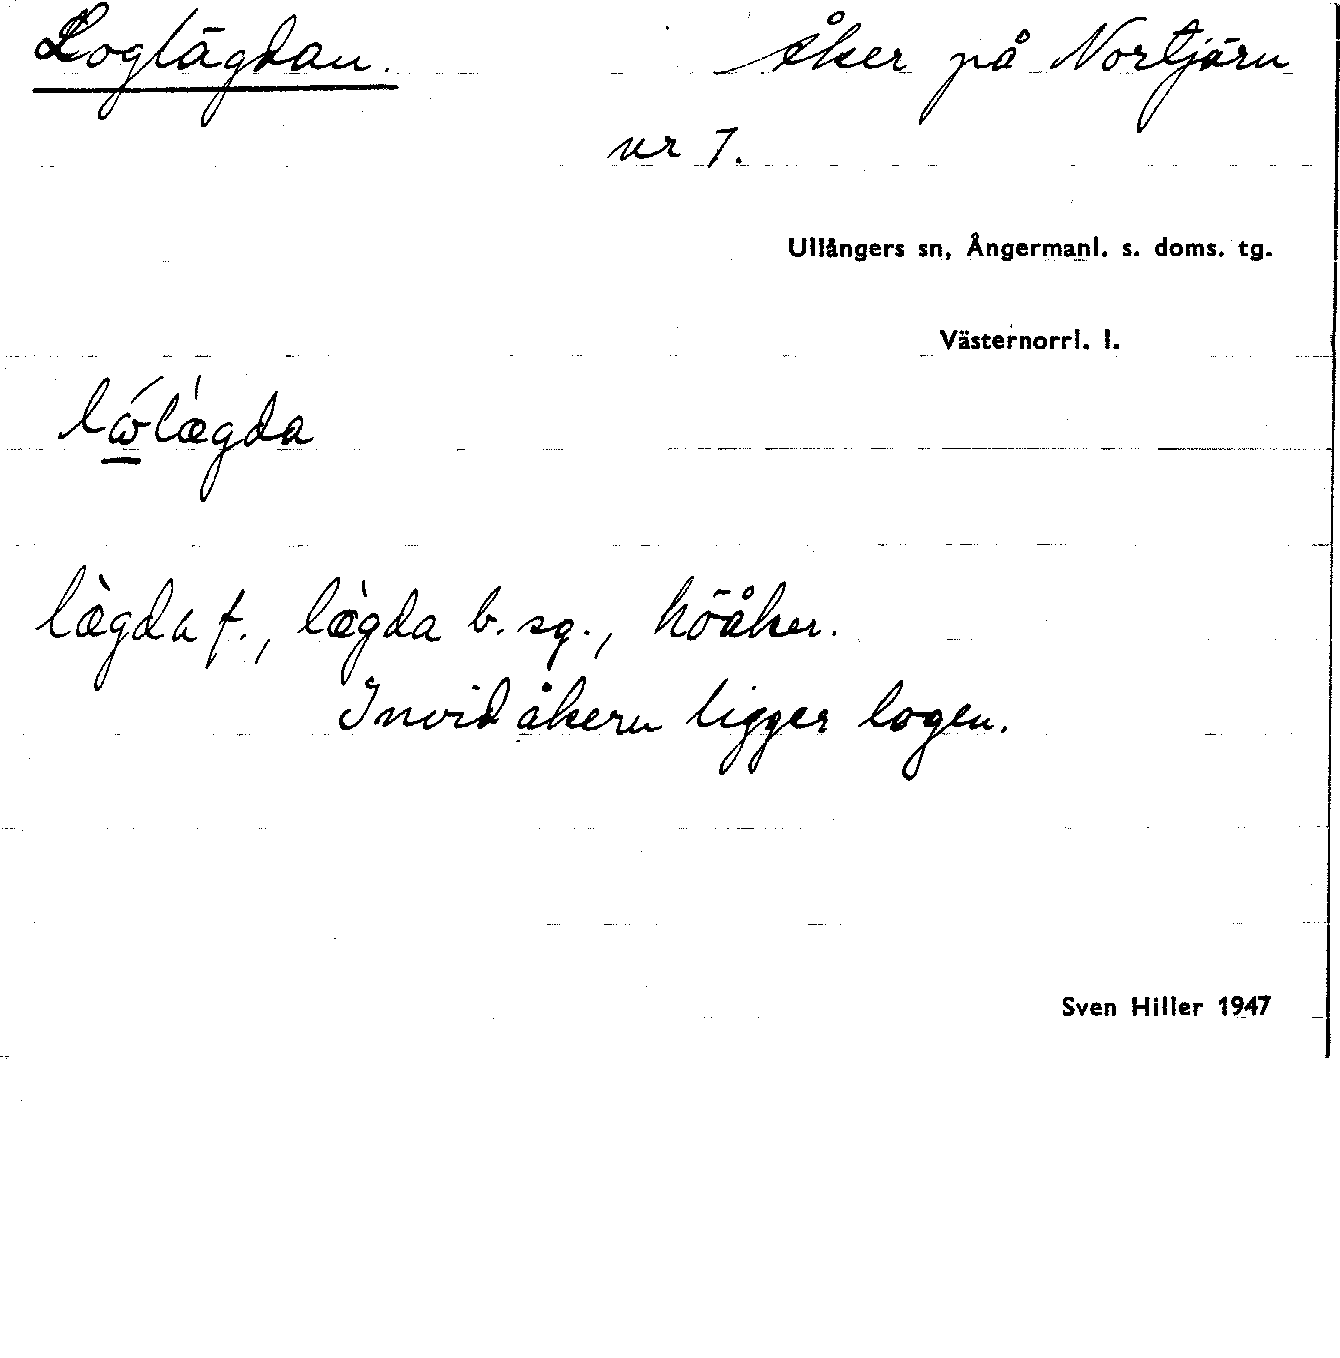 Loglägdan. Åker på Nortjärn
nr 7.
Ullångers sn, Ångermanl. s. doms. tg.
Västernorrl. l.
lώ̲læ̀gda
læ̀gda f., læ̀gda b. sg., höåker.
Invid åkern ligger logen.
Sven Hiller 1947